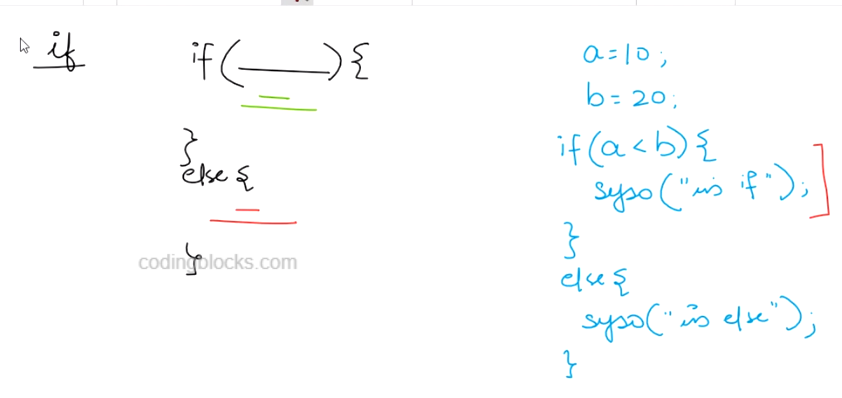 if
if(_____){
}
else {
}
codingblocks.com
a=10;
b=20;
if(a<b){
syso("in if");
}
else {
syso("in else");
}